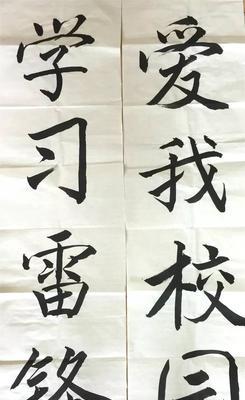 爱我校园
学习雷锋